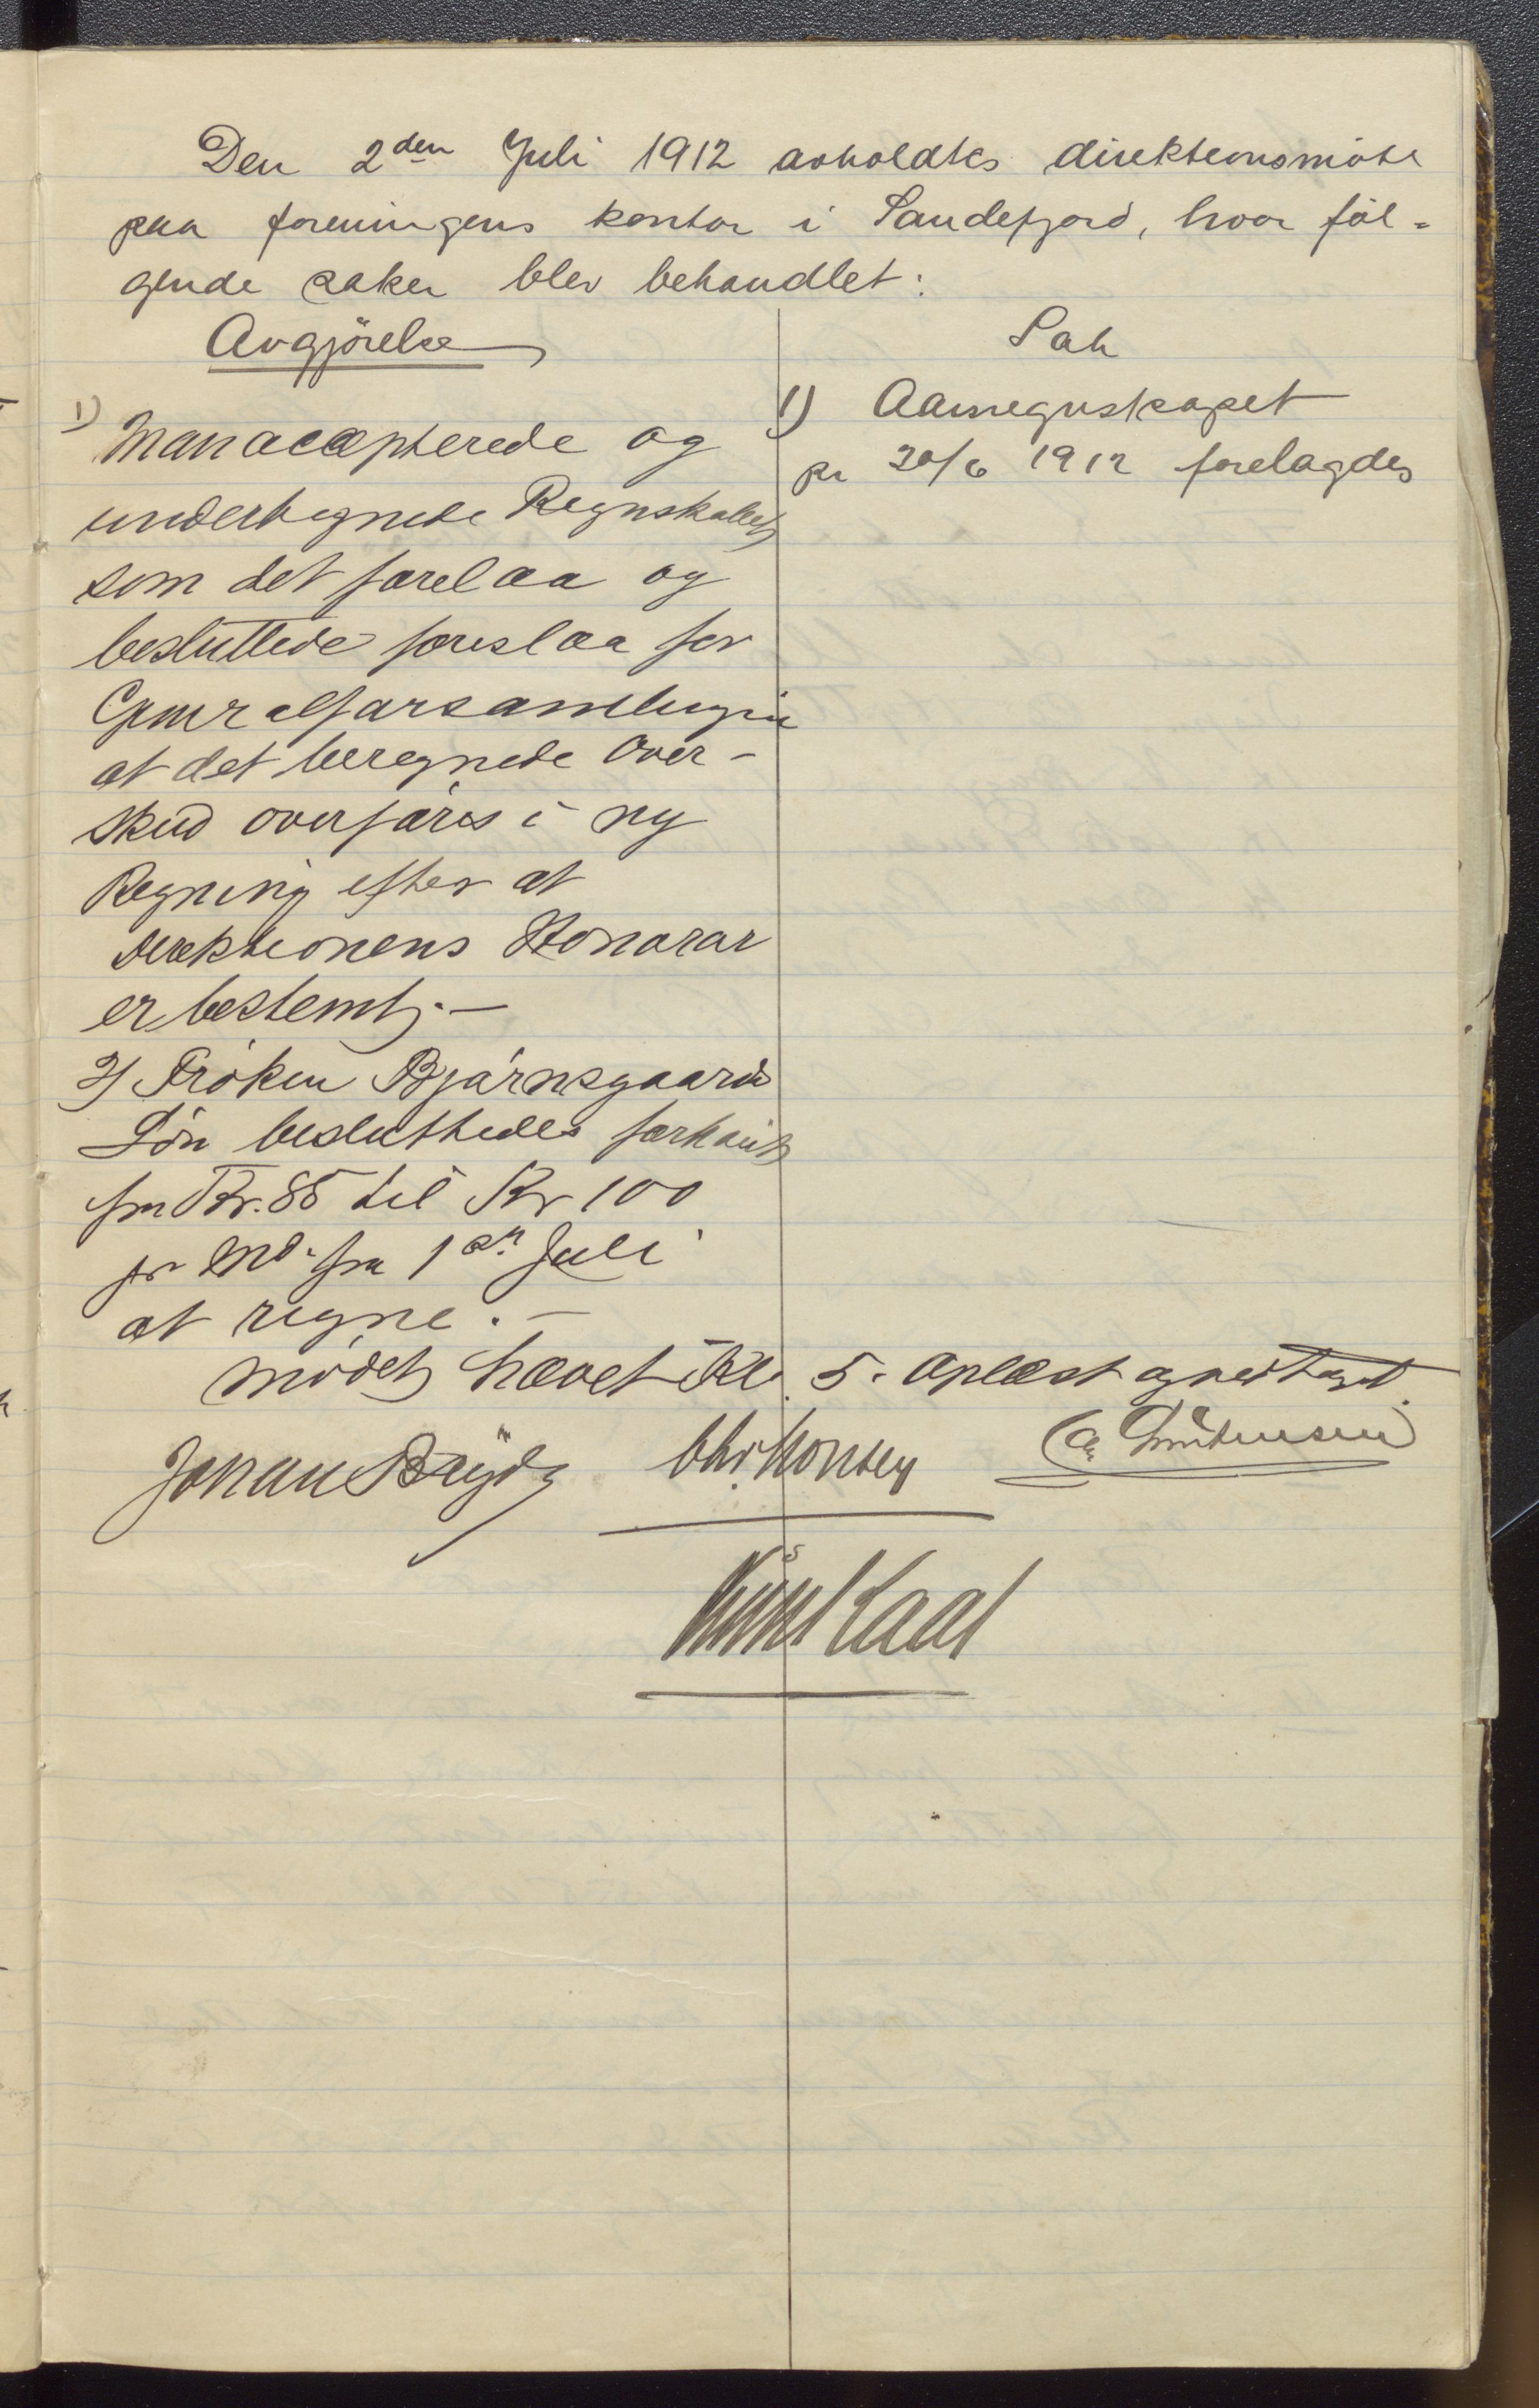 Den 2den Juli 1912 avholdtes direktionsmöte
paa foreningens kontor i Sandefjord, hvor föl-
gende saker blev behandlet:
Avgjörelse
Sak
1) Aarsregnskapet
pr 30/6 1912 forelagdes
1)
Man accepterede og
undertegnede Regnskabet
som det forelaa og
besluttede foreslaa for
Generalforsamlingen
at det beregnede Over-
skud overføres i ny
Regning efter at
Direktionens Honorar
er bestemt. —
2) Fröken Bjørnsgaards
Lön besluttedes forhöiet
fra Kr. 85 til Kr 100
pr Md. fra 1ste Juli
at regne. —
Mödet hævet Kl. 5. Oplæst og vedtaget.
Johan Bryde
Chr. Nonseg
Kaas